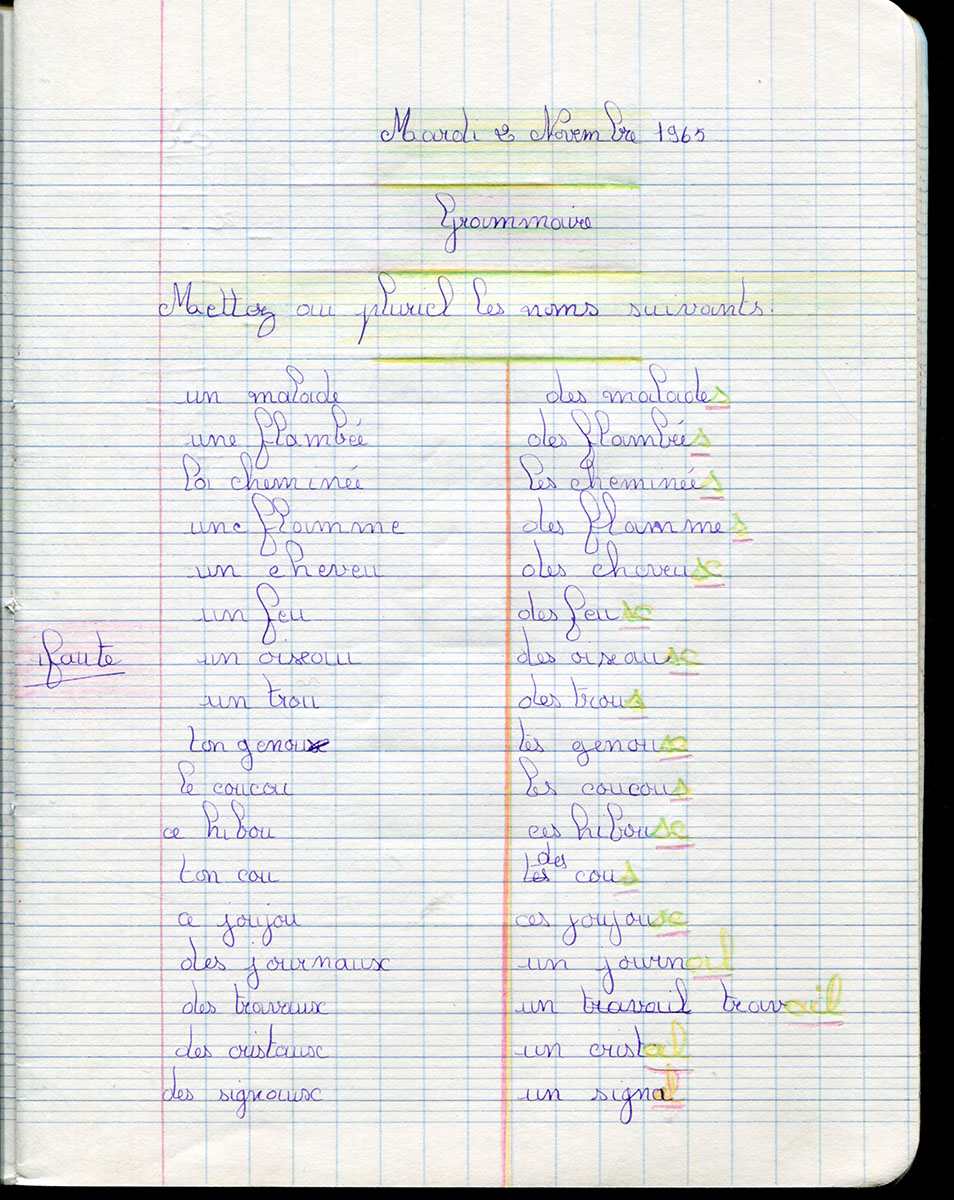 Mardi 2 Novembre 1965
Grammaire
Mettez au pluriel les noms suivants.
un malade des malades
une flambée des flambées
la cheminée les cheminées
une flamme des flammes
un cheveu des cheveux
un feu des feux
1 faute un oiseau des oiseaux
un trou des trous
ton genoux tes genoux
le coucou les coucous
ce hibou ces hiboux
ton cou tes des cous
ce joujou ces joujoux
des journaux un journal
des travaux un travail travail
des cristaux un cristal
des signaux un signal